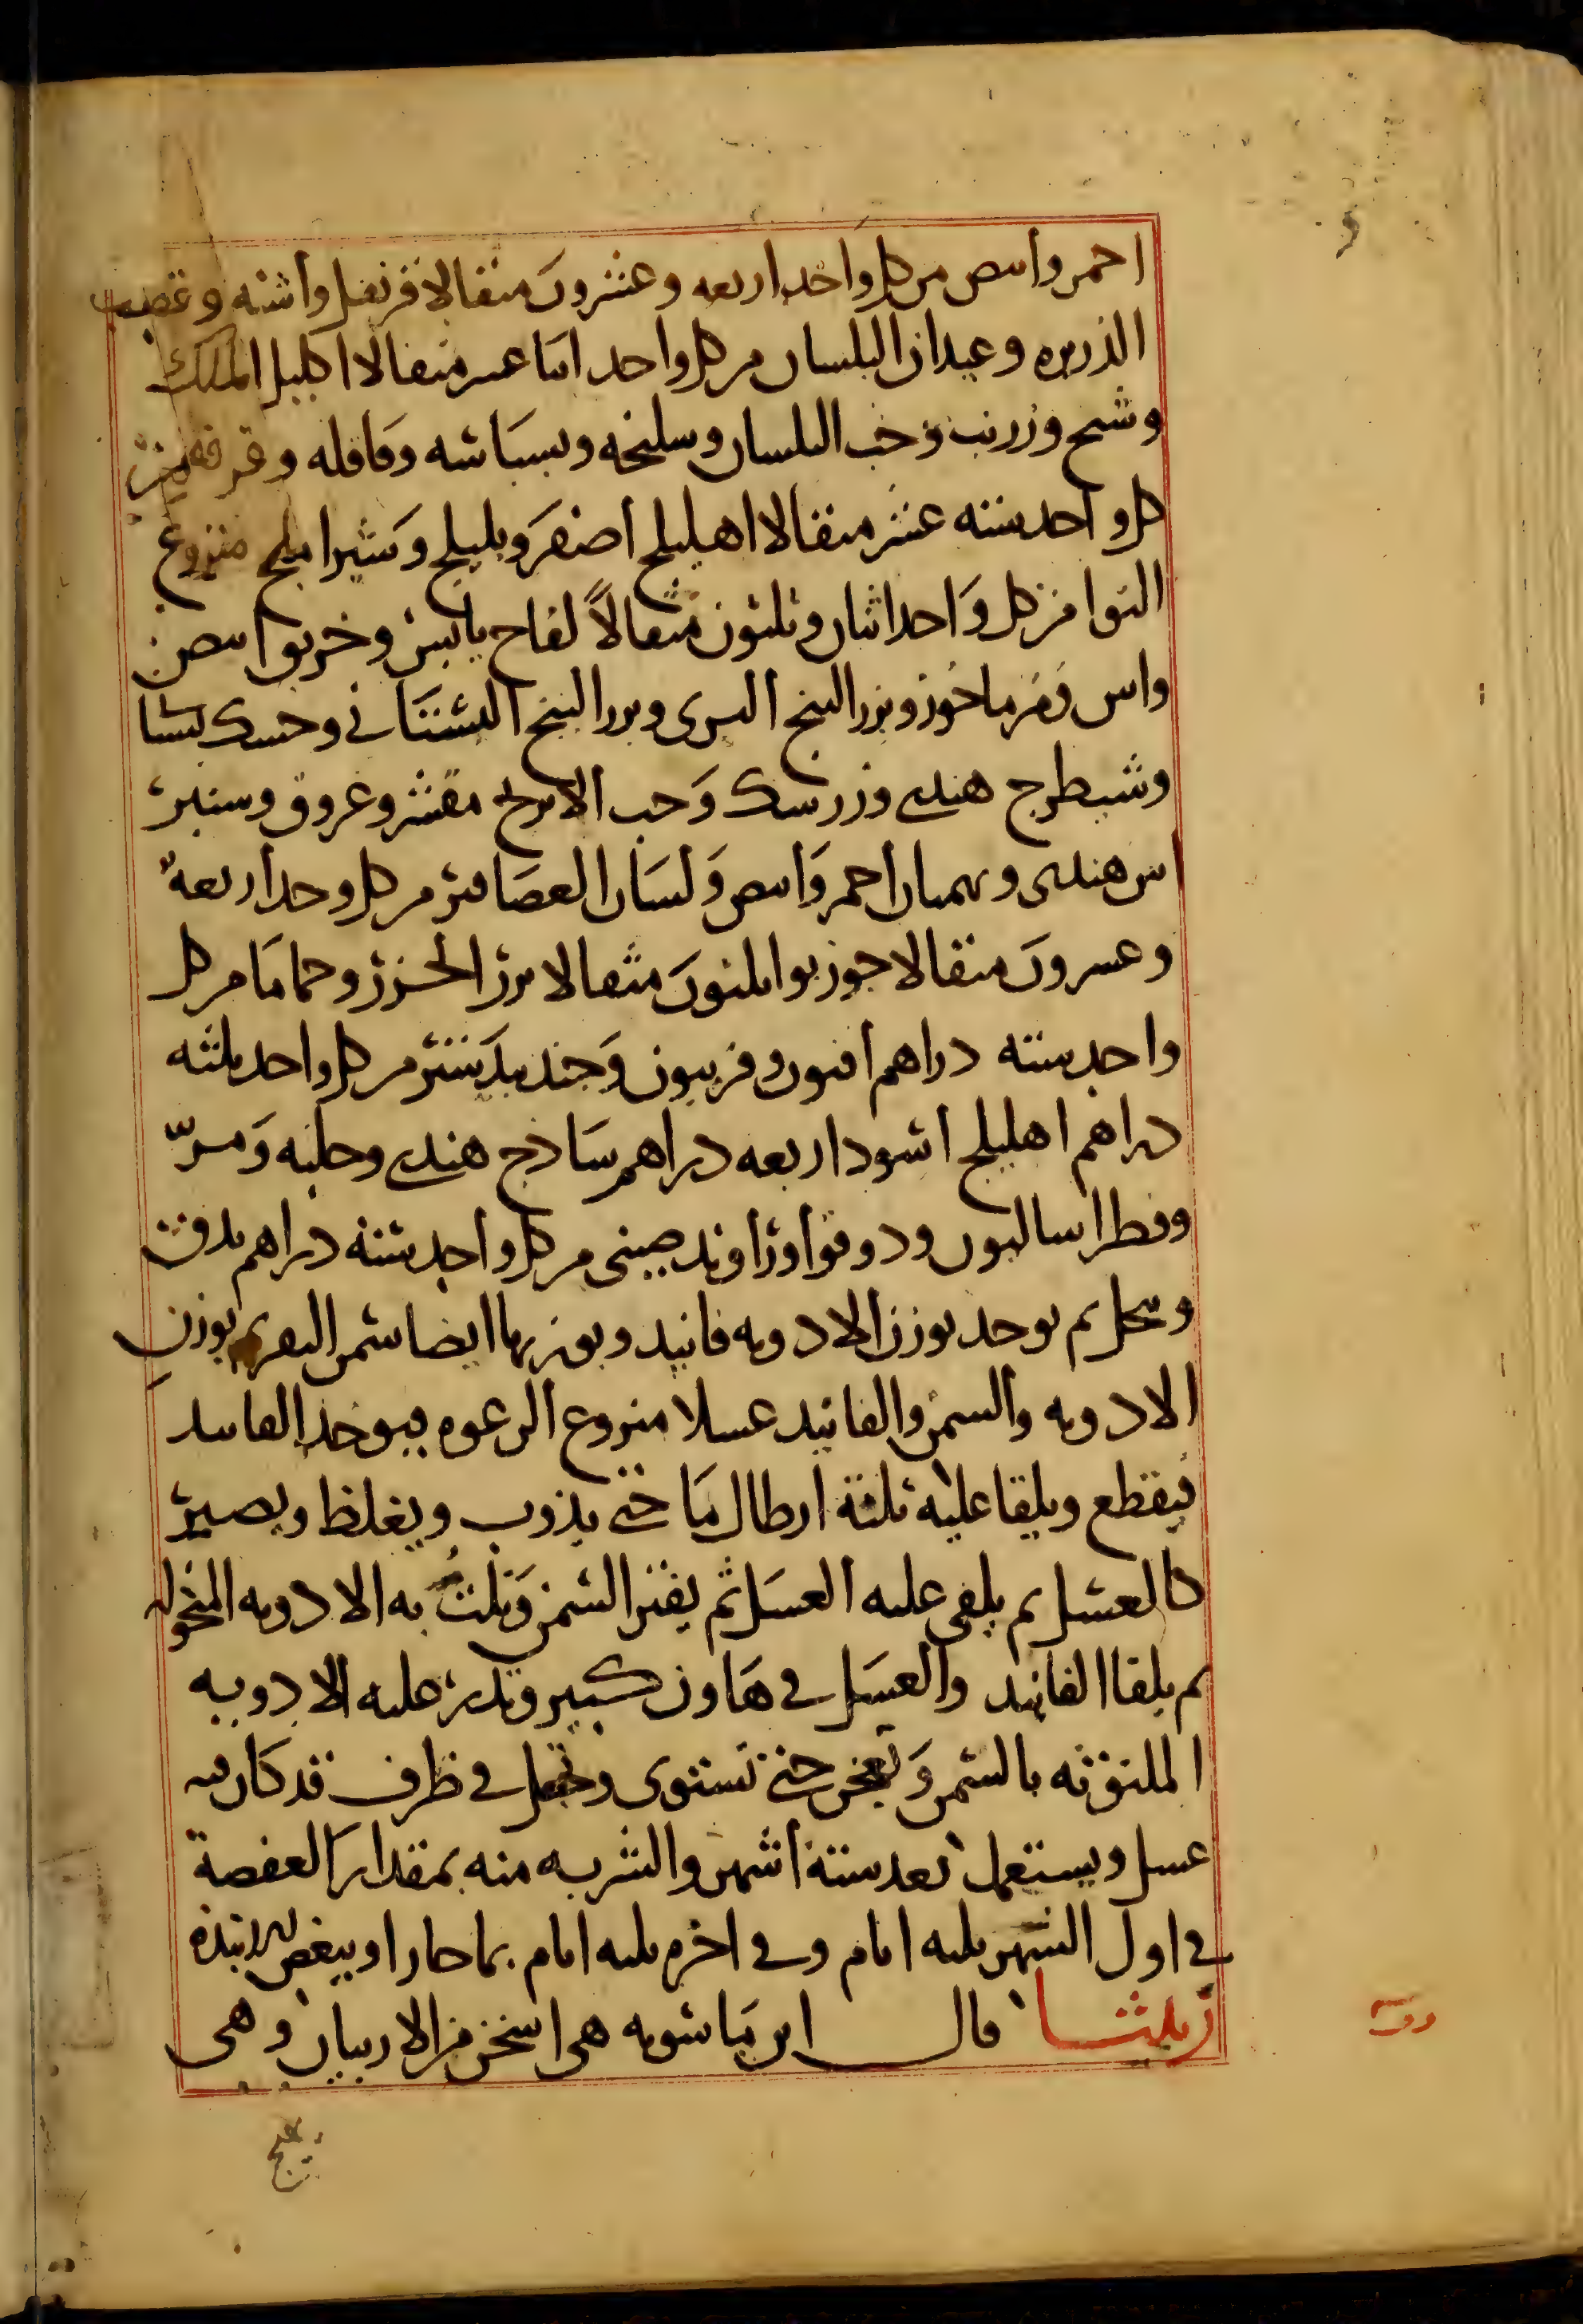 احمر وابيض من كل واحد اربعه وعشرون مثقالا قرنفل واشنه وقصب
الذريره وعيدان البلسان من كل واحد اثنا عشر مثقالا اكليل الملك
وشيح وزرنب وحب البلسان وسليخه وبسباسه وقاقله وقرفه من
كل واحد سته عشر مثقالا اهليلج اصفر وبليلج وشيراملج منزوع
النوا من كل واحد اثنان وثلثون مثقالاً لفاح يابس وخربق ابيض
واس ومرماحوز وبزر البنج البري وبزر البنج البستاني وحسك
وشيطرج هندي وزرسك وحب الاترج مقشر وعروق
هندي وبهمان احمر وابيض ولسان العصافير من كل وحد اربعةٌ
وعسرون مثقالا جوزبوا ثلثون مثقالا بزر الجزر وحماما من كل
واحد سته دراهم افيون وفربيون وجندبيدستر من كل واحد ثلثه
دراهم اهليلج اسود اربعه دراهم ساذج هندي وحلبه ومرّ
وفطراساليون ودوقوا وزراوند صيني من كل واحد سته دراهم يدق
وينخل ثم يوخد بوزن الادويه فانيد وبوزنها ايضا سمن البقر ثم بوزن
الادويه والسمن والفانيد عسلا منزوع الرغوه فيوخد الفانيد
فيقطع ويلقا عليه ثلثة ارطال ما حتى يذوب ويغلظ ويصير
كالعسل ثم يلقى عليه العسل ثم يفتر السمن وتلتُّ به الادويه المنخوله
ثم يلقا الفانيد والعسل في هاون كبير وتذر عليه الادويه
الملتوته بالسمن وتعجن حتى تستوى وتجعل في ظرف قد كان فيه
عسل ويستعمل بعد ستة اشهر والشربه منه بمقدار العفصة
في اول الشهر ثلثه ايام وفي اخره ثلثه ايام بما حار او ببعض الانبذه
زيلثا قال ابن ماسويه هي اسخن من الاربيان وهي